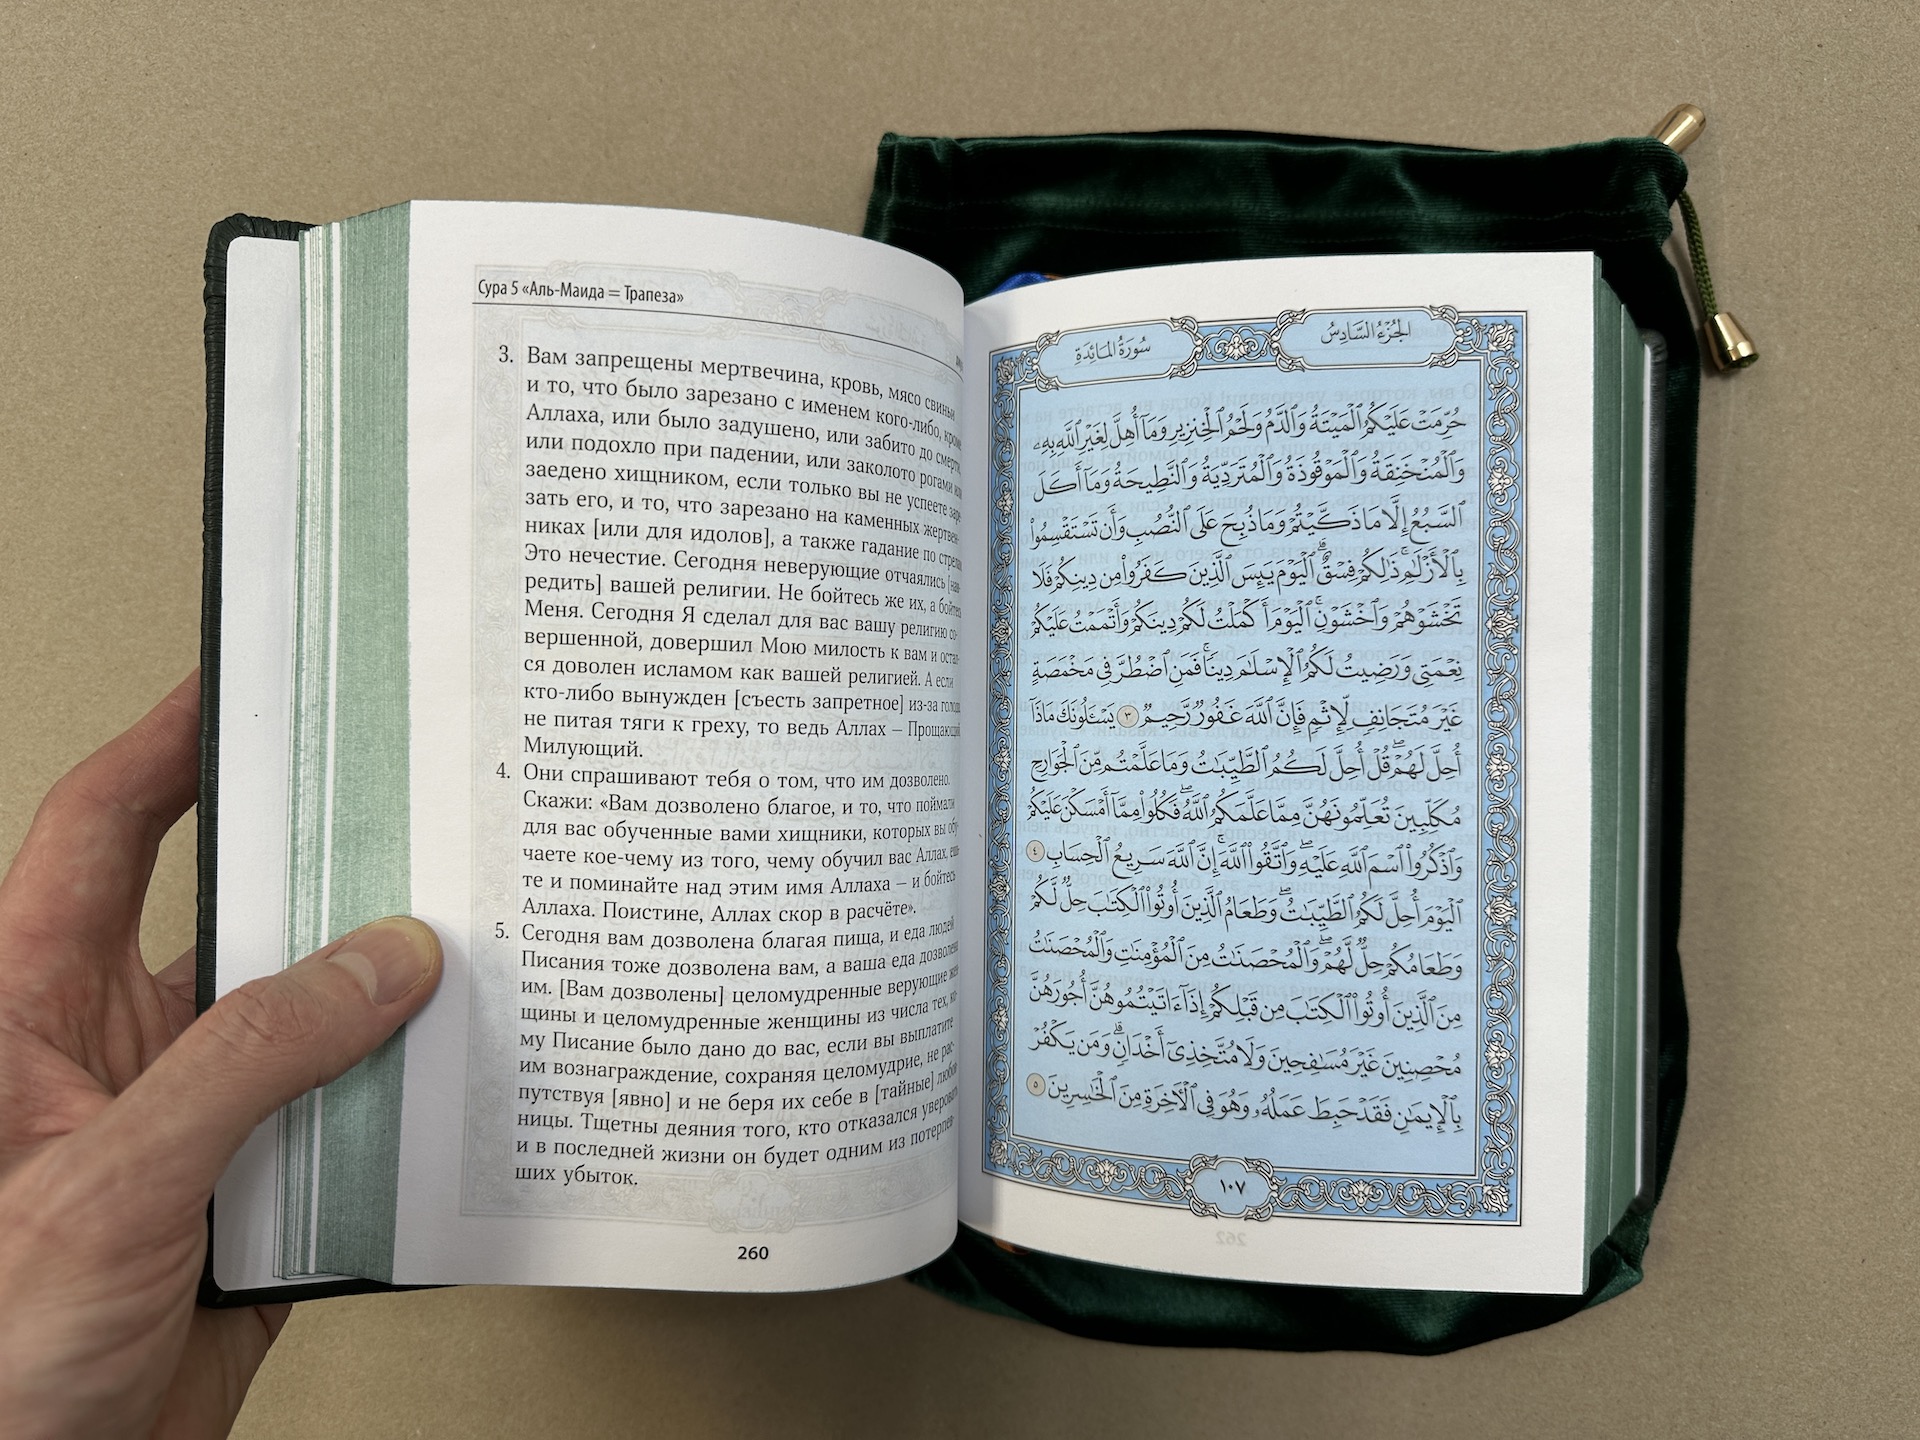 Сура 5 «Аль-Маида = Трапеза»
3. Вам запрещены мертвечина, кровь, мясо свиньи
и то, что было зарезано с именем кого-либо, кроме
Аллаха, или было задушено, или забито до смерти,
или подохло при падении, или заколото рогами или
заедено хищником, если только вы не успеете заре-
зать его, и то, что зарезано на каменных жертвен-
никах [или для идолов], а также гадание по стрелам.
Это нечестие. Сегодня неверующие отчаялись [нав-
редить] вашей религии. Не бойтесь же их, а бойтесь
Меня. Сегодня Я сделал для вас вашу религию со-
вершенной, довершил Мою милость к вам и остал-
ся доволен исламом как вашей религией. А если
кто-либо вынужден [съесть запретное] из-за голода,
не питая тяги к греху, то ведь Аллах – Прощающий,
Милующий.
4. Они спрашивают тебя о том, что им дозволено.
Скажи: «Вам дозволено благое, и то, что поймали
для вас обученные вами хищники, которых вы обу-
чаете кое-чему из того, чему обучил вас Аллах, ешь-
те и поминайте над этим имя Аллаха – и бойтесь
Аллаха. Поистине, Аллах скор в расчёте».
5. Сегодня вам дозволена благая пища, и еда людей
Писания тоже дозволена вам, а ваша еда дозволена
им. [Вам дозволены] целомудренные верующие жен-
щины и целомудренные женщины из числа тех, ко-
му Писание было дано до вас, если вы выплатите
им вознаграждение, сохраняя целомудрие, не рас-
путствуя [явно] и не беря их себе в [тайные] любов-
ницы. Тщетны деяния того, кто отказался уверовать,
и в последней жизни он будет одним из потерпев-
ших убыток.
260
الجُزْءُ السَّادِسُ
سُورَةُ المَائِدَةِ
حُرِّمَتْ عَلَيْكُمُ ٱلْمَيْتَةُ وَٱلدَّمُ وَلَحْمُ ٱلْخِنزِيرِ وَمَآ أُهِلَّ لِغَيْرِ ٱللَّهِ بِهِۦ
وَٱلْمُنْخَنِقَةُ وَٱلْمَوْقُوذَةُ وَٱلْمُتَرَدِّيَةُ وَٱلنَّطِيحَةُ وَمَآ أَكَلَ
ٱلسَّبُعُ إِلَّا مَا ذَكَّيْتُمْ وَمَا ذُبِحَ عَلَى ٱلنُّصُبِ وَأَن تَسْتَقْسِمُوا۟
بِٱلْأَزْلَٰمِ ۚ ذَٰلِكُمْ فِسْقٌ ۗ ٱلْيَوْمَ يَئِسَ ٱلَّذِينَ كَفَرُوا۟ مِن دِينِكُمْ فَلَا
تَخْشَوْهُمْ وَٱخْشَوْنِ ۚ ٱلْيَوْمَ أَكْمَلْتُ لَكُمْ دِينَكُمْ وَأَتْمَمْتُ عَلَيْكُمْ
نِعْمَتِى وَرَضِيتُ لَكُمُ ٱلْإِسْلَٰمَ دِينًا ۚ فَمَنِ ٱضْطُرَّ فِى مَخْمَصَةٍ
غَيْرَ مُتَجَانِفٍ لِّإِثْمٍ ۙ فَإِنَّ ٱللَّهَ غَفُورٌ رَّحِيمٌ ٣ يَسْـَٔلُونَكَ مَاذَآ
أُحِلَّ لَهُمْ ۖ قُلْ أُحِلَّ لَكُمُ ٱلطَّيِّبَٰتُ ۙ وَمَا عَلَّمْتُم مِّنَ ٱلْجَوَارِحِ
مُكَلِّبِينَ تُعَلِّمُونَهُنَّ مِمَّا عَلَّمَكُمُ ٱللَّهُ ۖ فَكُلُوا۟ مِمَّآ أَمْسَكْنَ عَلَيْكُمْ
وَٱذْكُرُوا۟ ٱسْمَ ٱللَّهِ عَلَيْهِ ۖ وَٱتَّقُوا۟ ٱللَّهَ ۚ إِنَّ ٱللَّهَ سَرِيعُ ٱلْحِسَابِ ٤
ٱلْيَوْمَ أُحِلَّ لَكُمُ ٱلطَّيِّبَٰتُ ۖ وَطَعَامُ ٱلَّذِينَ أُوتُوا۟ ٱلْكِتَٰبَ حِلٌّ لَّكُمْ
وَطَعَامُكُمْ حِلٌّ لَّهُمْ ۖ وَٱلْمُحْصَنَٰتُ مِنَ ٱلْمُؤْمِنَٰتِ وَٱلْمُحْصَنَٰتُ
مِنَ ٱلَّذِينَ أُوتُوا۟ ٱلْكِتَٰبَ مِن قَبْلِكُمْ إِذَآ ءَاتَيْتُمُوهُنَّ أُجُورَهُنَّ
مُحْصِنِينَ غَيْرَ مُسَٰفِحِينَ وَلَا مُتَّخِذِىٓ أَخْدَانٍ ۗ وَمَن يَكْفُرْ
بِٱلْإِيمَٰنِ فَقَدْ حَبِطَ عَمَلُهُۥ وَهُوَ فِى ٱلْءَاخِرَةِ مِنَ ٱلْخَٰسِرِينَ ٥
١٠٧